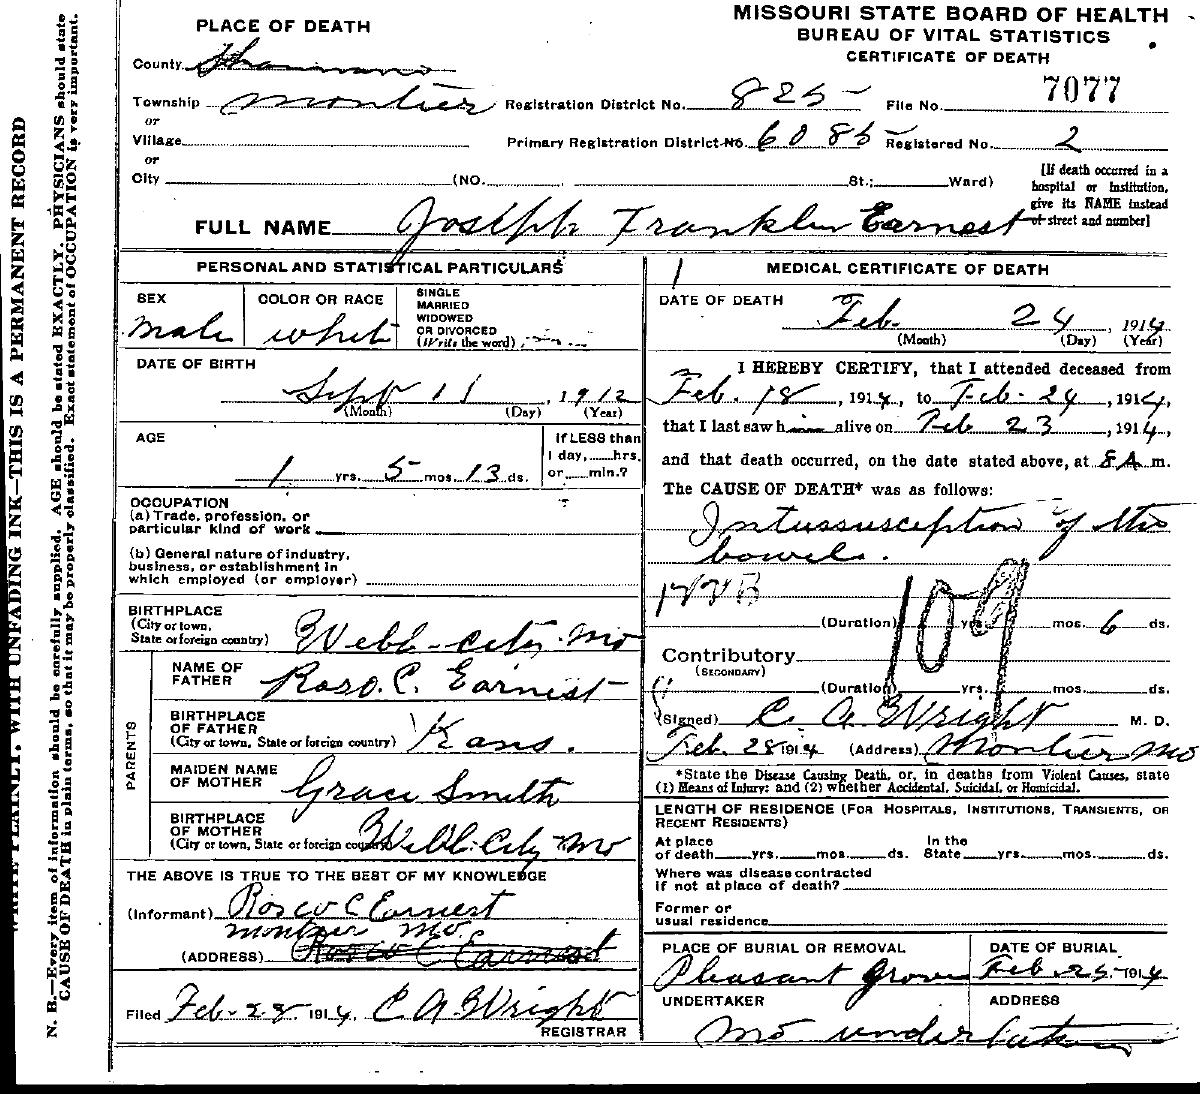 MISSOURI STATE BOARD OF HEALTH
BUREAU OF VITAL STATISTICS
CERTIFICATE OF DEATH
PLACE OF DEATH
County Shannon
Township Montier Registration District No. 825 File No. 7077
or
Village Primary Registration District No. 6085 Registered No. 2
or
City (NO. St.; Ward)
[If death occurred in a
hospital or institution,
give its NAME instead
of street and number]
FULL NAME Joseph Franklin Earnest
PERSONAL AND STATISTICAL PARTICULARS
SEX
Male
COLOR OR RACE
whit
SINGLE
MARRIED
WIDOWED
OR DIVORCED
(Write the word)
DATE OF BIRTH
Sept 11, 1912
(Month) (Day) (Year)
AGE
If LESS than
1 day, hrs.
or min.?
1 yrs. 5 mos. 13 ds.
OCCUPATION
(a) Trade, profession, or
particular kind of work
(b) General nature of industry,
business, or establishment in
which employed (or employer)
BIRTHPLACE
(City or town,
State or foreign country) Webb-City-Mo
PARENTS
NAME OF
FATHER Roso. C. Earnest
BIRTHPLACE
OF FATHER
(City or town, State or foreign country) Kans.
MAIDEN NAME
OF MOTHER Grace Smith
BIRTHPLACE
OF MOTHER
(City or town, State or foreign country) Webb-City-Mo
THE ABOVE IS TRUE TO THE BEST OF MY KNOWLEDGE
(Informant) Rosco C Earnest
Montier Mo.
(ADDRESS) Rosco C Earnest
Filed Feb-28, 1914, C A Wright
REGISTRAR
1
MEDICAL CERTIFICATE OF DEATH
DATE OF DEATH
Feb. 24, 1914
(Month) (Day) (Year)
I HEREBY CERTIFY, that I attended deceased from
Feb. 18, 1914, to Feb-24, 1914,
that I last saw him alive on Feb 23, 1914,
and that death occurred, on the date stated above, at 8 A m.
The CAUSE OF DEATH* was as follows:
Intussusception of the
bowels.
109
(Duration) yrs. mos. 6 ds.
Contributory
(SECONDARY)
(Duration) yrs. mos. ds.
(Signed) C. A Wright M. D.
Feb. 28 1914 (Address) Montier Mo
*State the Disease Causing Death, or, in deaths from Violent Causes, state
(1) Means of Injury; and (2) whether Accidental, Suicidal, or Homicidal.
LENGTH OF RESIDENCE (For Hospitals, Institutions, Transients, or
Recent Residents)
At place In the
of death yrs. mos. ds. State yrs. mos. ds.
Where was disease contracted
if not at place of death?
Former or
usual residence
PLACE OF BURIAL OR REMOVAL
Pleasant Grove
DATE OF BURIAL
Feb. 25-1914
UNDERTAKER ADDRESS
No undertaker
WRITE PLAINLY, WITH UNFADING INK—THIS IS A PERMANENT RECORD
N. B.—Every item of information should be carefully supplied. AGE should be stated EXACTLY. PHYSICIANS should state
CAUSE OF DEATH in plain terms, so that it may be properly classified. Exact statement of OCCUPATION is very important.